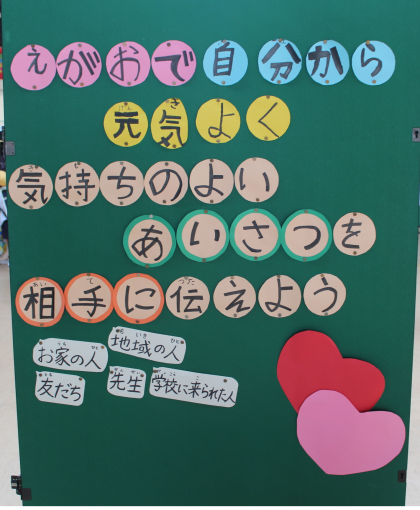 えがおで自分から
元気よく
気持ちのよい
あいさつを
相手に伝えよう
お家の人
地域の人
友だち
先生
学校に来られた人